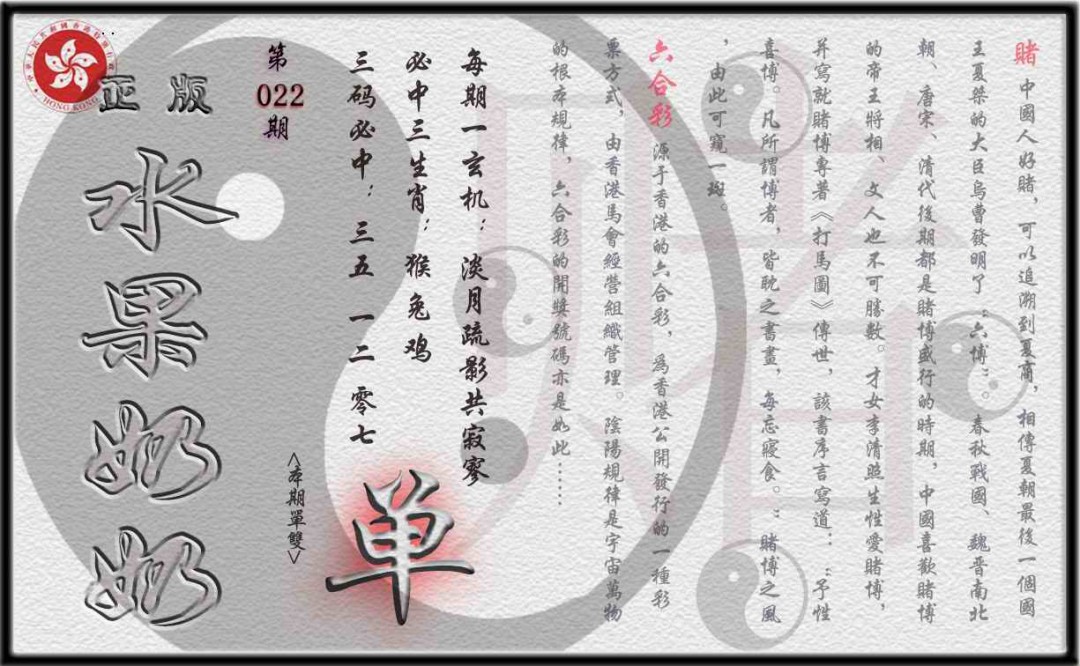 賭 中國人好賭，可以追溯到夏商，相傳夏朝最後一個國
王夏桀的大臣烏曹發明了“六博”。春秋戰國、魏晉南北
朝、唐宋、清代後期都是賭博盛行的時期，中國喜歡賭博
的帝王將相、文人也不可勝數。才女李清照生性愛賭博，
并寫就賭博專著《打馬圖》傳世，該書序言寫道：“予性
喜博。凡所謂博者，皆耽之書畫，每忘寢食。”賭博之風
，由此可窺一斑。
六合彩 源于香港的六合彩，為香港公開發行的一種彩
票方式，由香港馬會經營組織管理。陰陽規律是宇宙萬物
的根本規律，六合彩的開獎號碼亦是如此……
每期一玄机：淡月疏影共寂寥
必中三生肖：猴兔鸡
三码必中：三五 一二 零七
单
<本期單雙>
第
022
期
正版
水果奶奶
HONG KONG